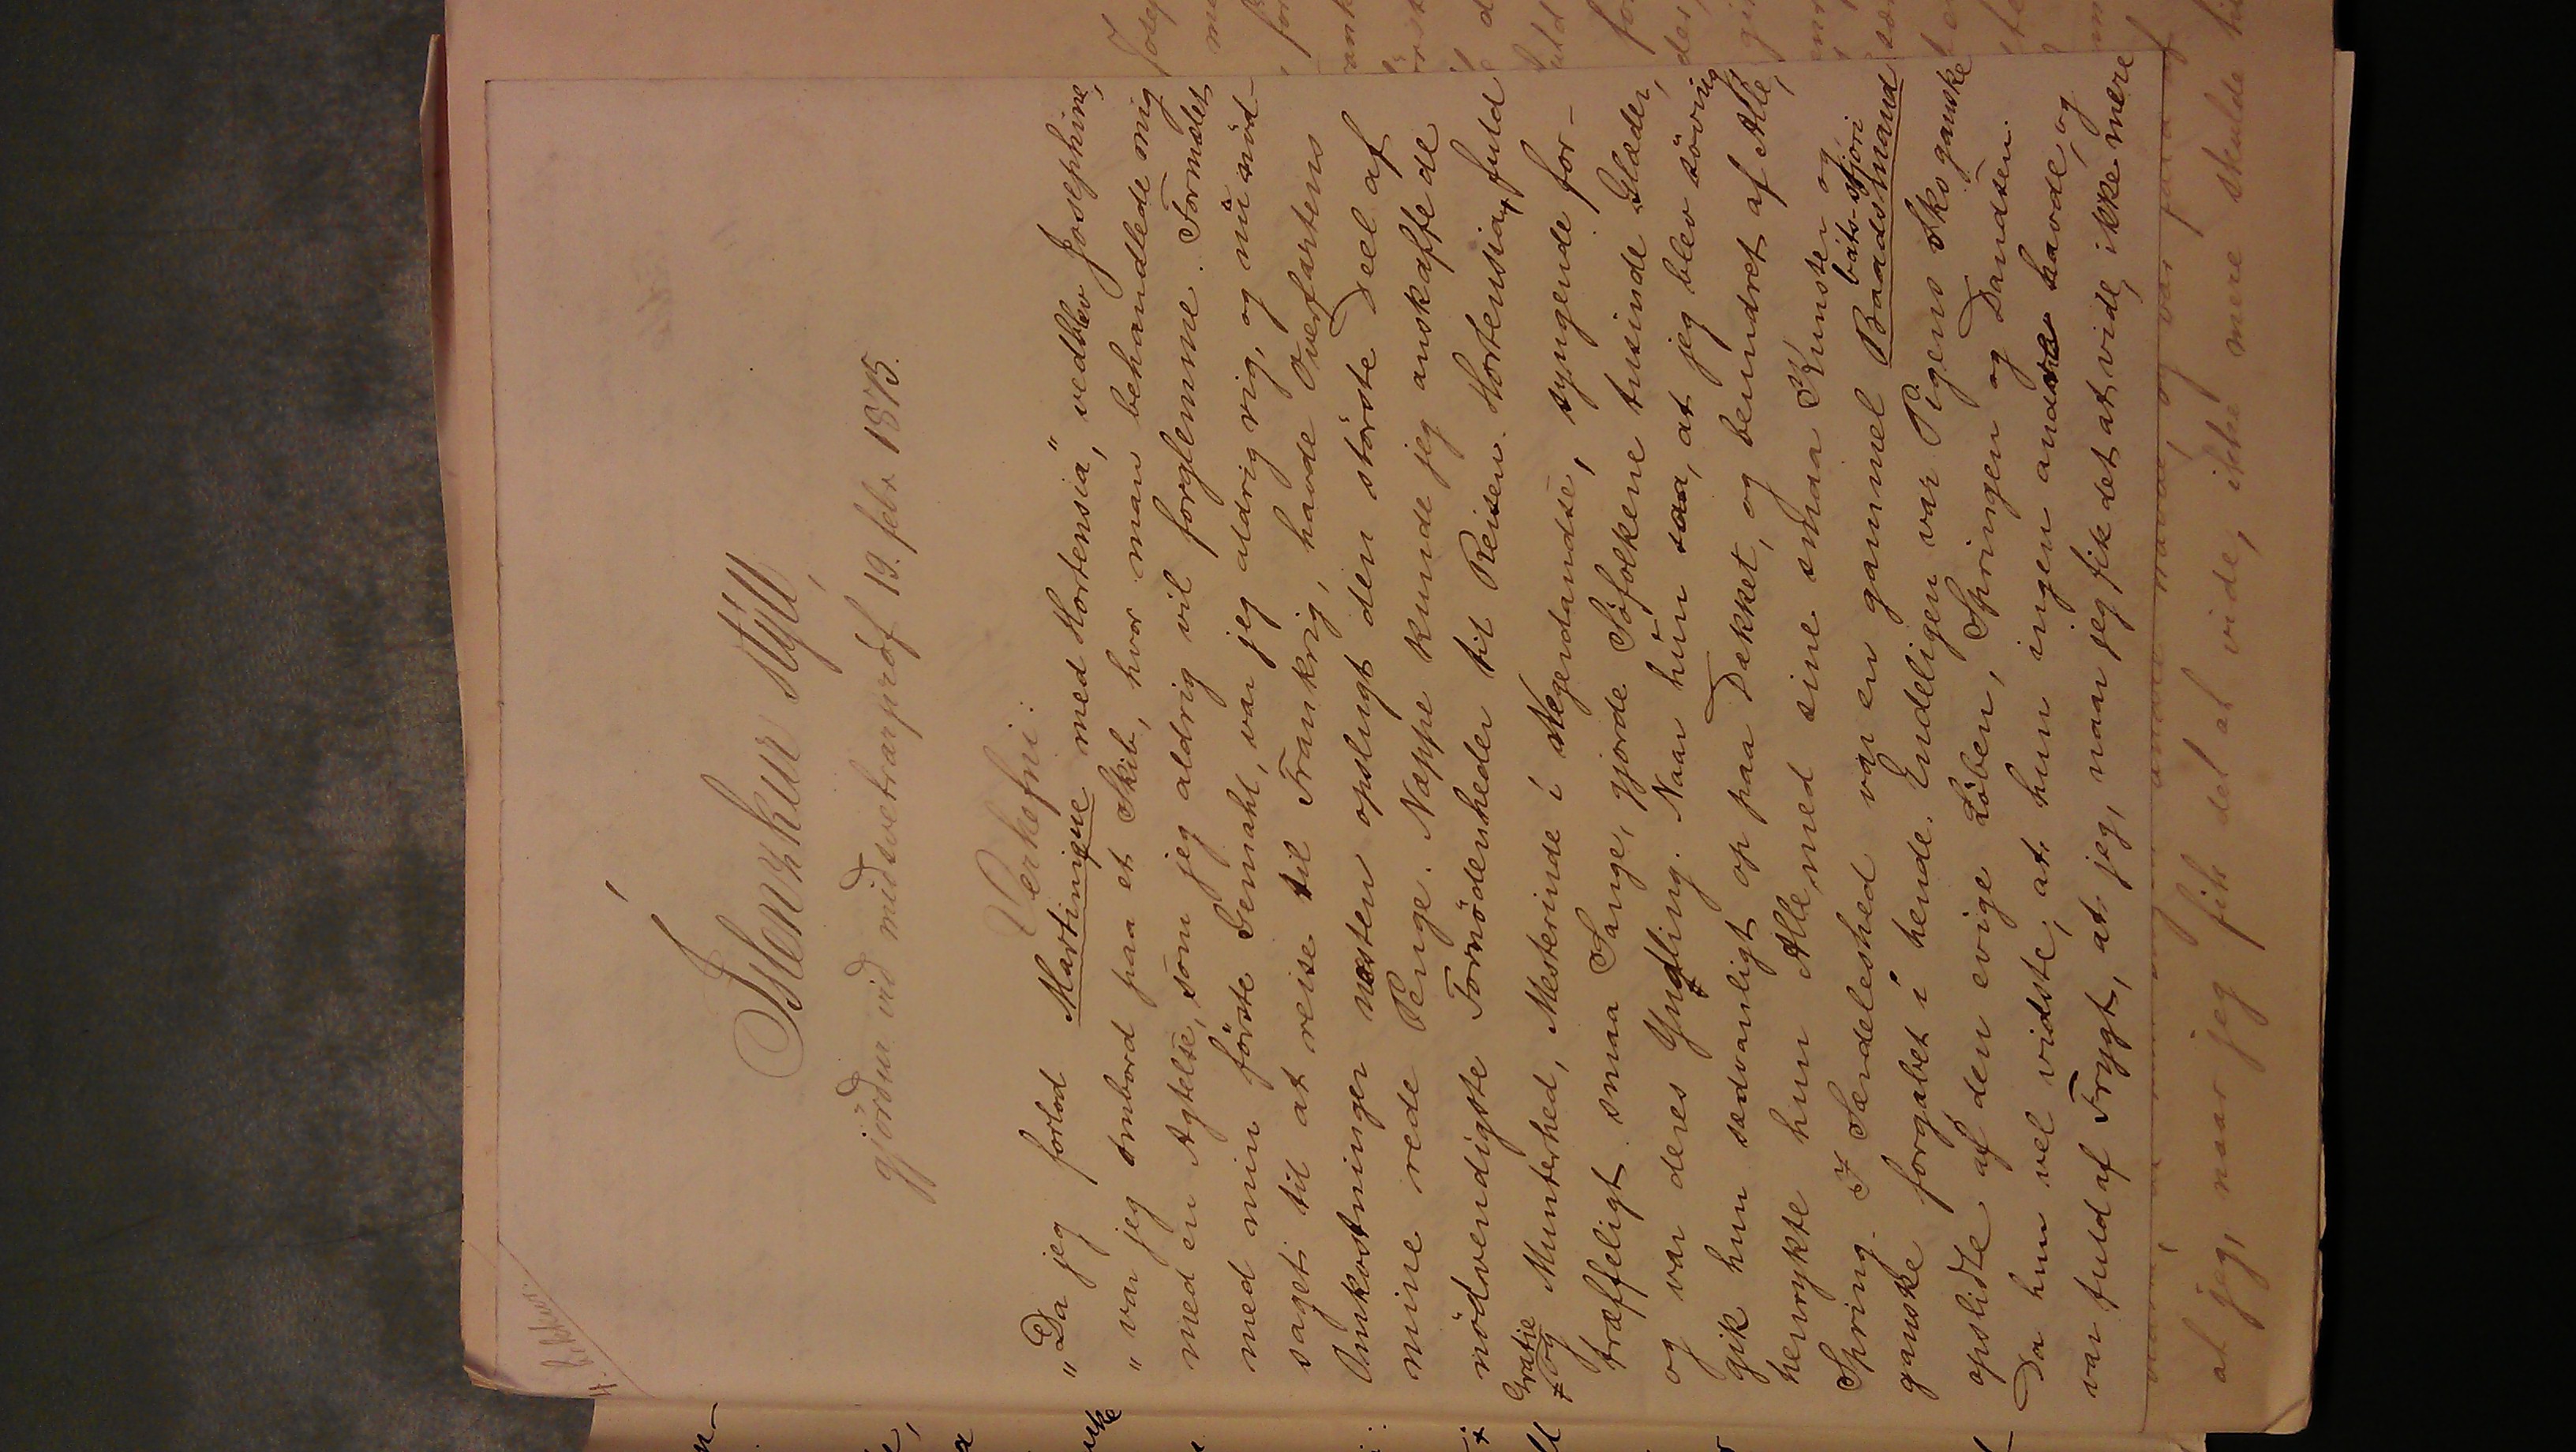 4. bekkur.
Íslenzkur stýll,
gjörður við miðsvetrarpróf 19. febr. 1875.
Verkefni:
"Da jeg forlod Martinique med Hortensia," vedblev Josephine,
"var jeg ombord paa et Skib, hvor man behandlede mig
med en Agtelse, som jeg aldrig vil forglemme. Formælet
med min förste Gemahl, var jeg aldrig rig, og nü nöd-
saget til at reise til Frankrig, havde Overfartens
Omkostninger næsten opslugt den störste Deel af
mine rede Penge. Neppe kunde jeg anskaffe de
nödvendigste Fornödenheder til Reisen. Hortensia, + fuld
Gratie
+ og Munterhed, Mesterinde i Negerdandse, syngende for-
træffeligt smaa Sange, gjorde Söfolkene tusinde Glæder,
og var deres Yndling. Naar hün saa, at jeg blev sövnig
gik hun sædvanligt op paa Dækket, og beundret af Alle,
henrykte hun Alle med sine smaa Kunster og
båts-stjóri
Spring. I Særdeleshed var en gammel Baadsmand
ganske forgabet i hende. Endeligen var Pigens Sko ganske
opslidte af den evige Löben, Springen og Dandsen.
Da hun vel vidste, at hun ingen andre havde, og
var fuld af Frygt, at jeg, naar jeg fik det at vide, ikke mere
at jeg, naar jeg fik det at vide, ikke mere skulde